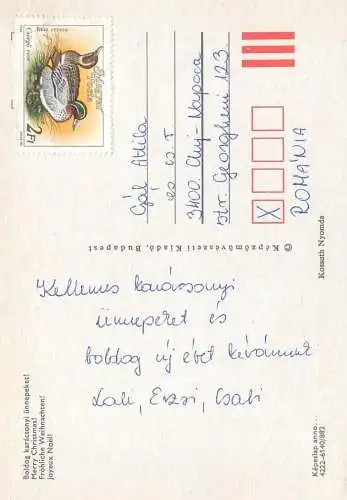 Magyar Posta
2Ft
Gál Attila
és cs. T.
3400 Cluj-Napoca
str. Georgheni 123.
X
ROMÁNIA
© Képzőművészeti Kiadó, Budapest
Kossuth Nyomda
Kellemes karácsonyi
ünnepeket és
boldog új évet kívánnak
Lali, Erzsi, Csabi
Boldog karácsonyi ünnepeket!
Merry Christmas!
Fröhliche Weihnachten!
Joyeux Noël!
Képeslap anno...
4222-6140/882